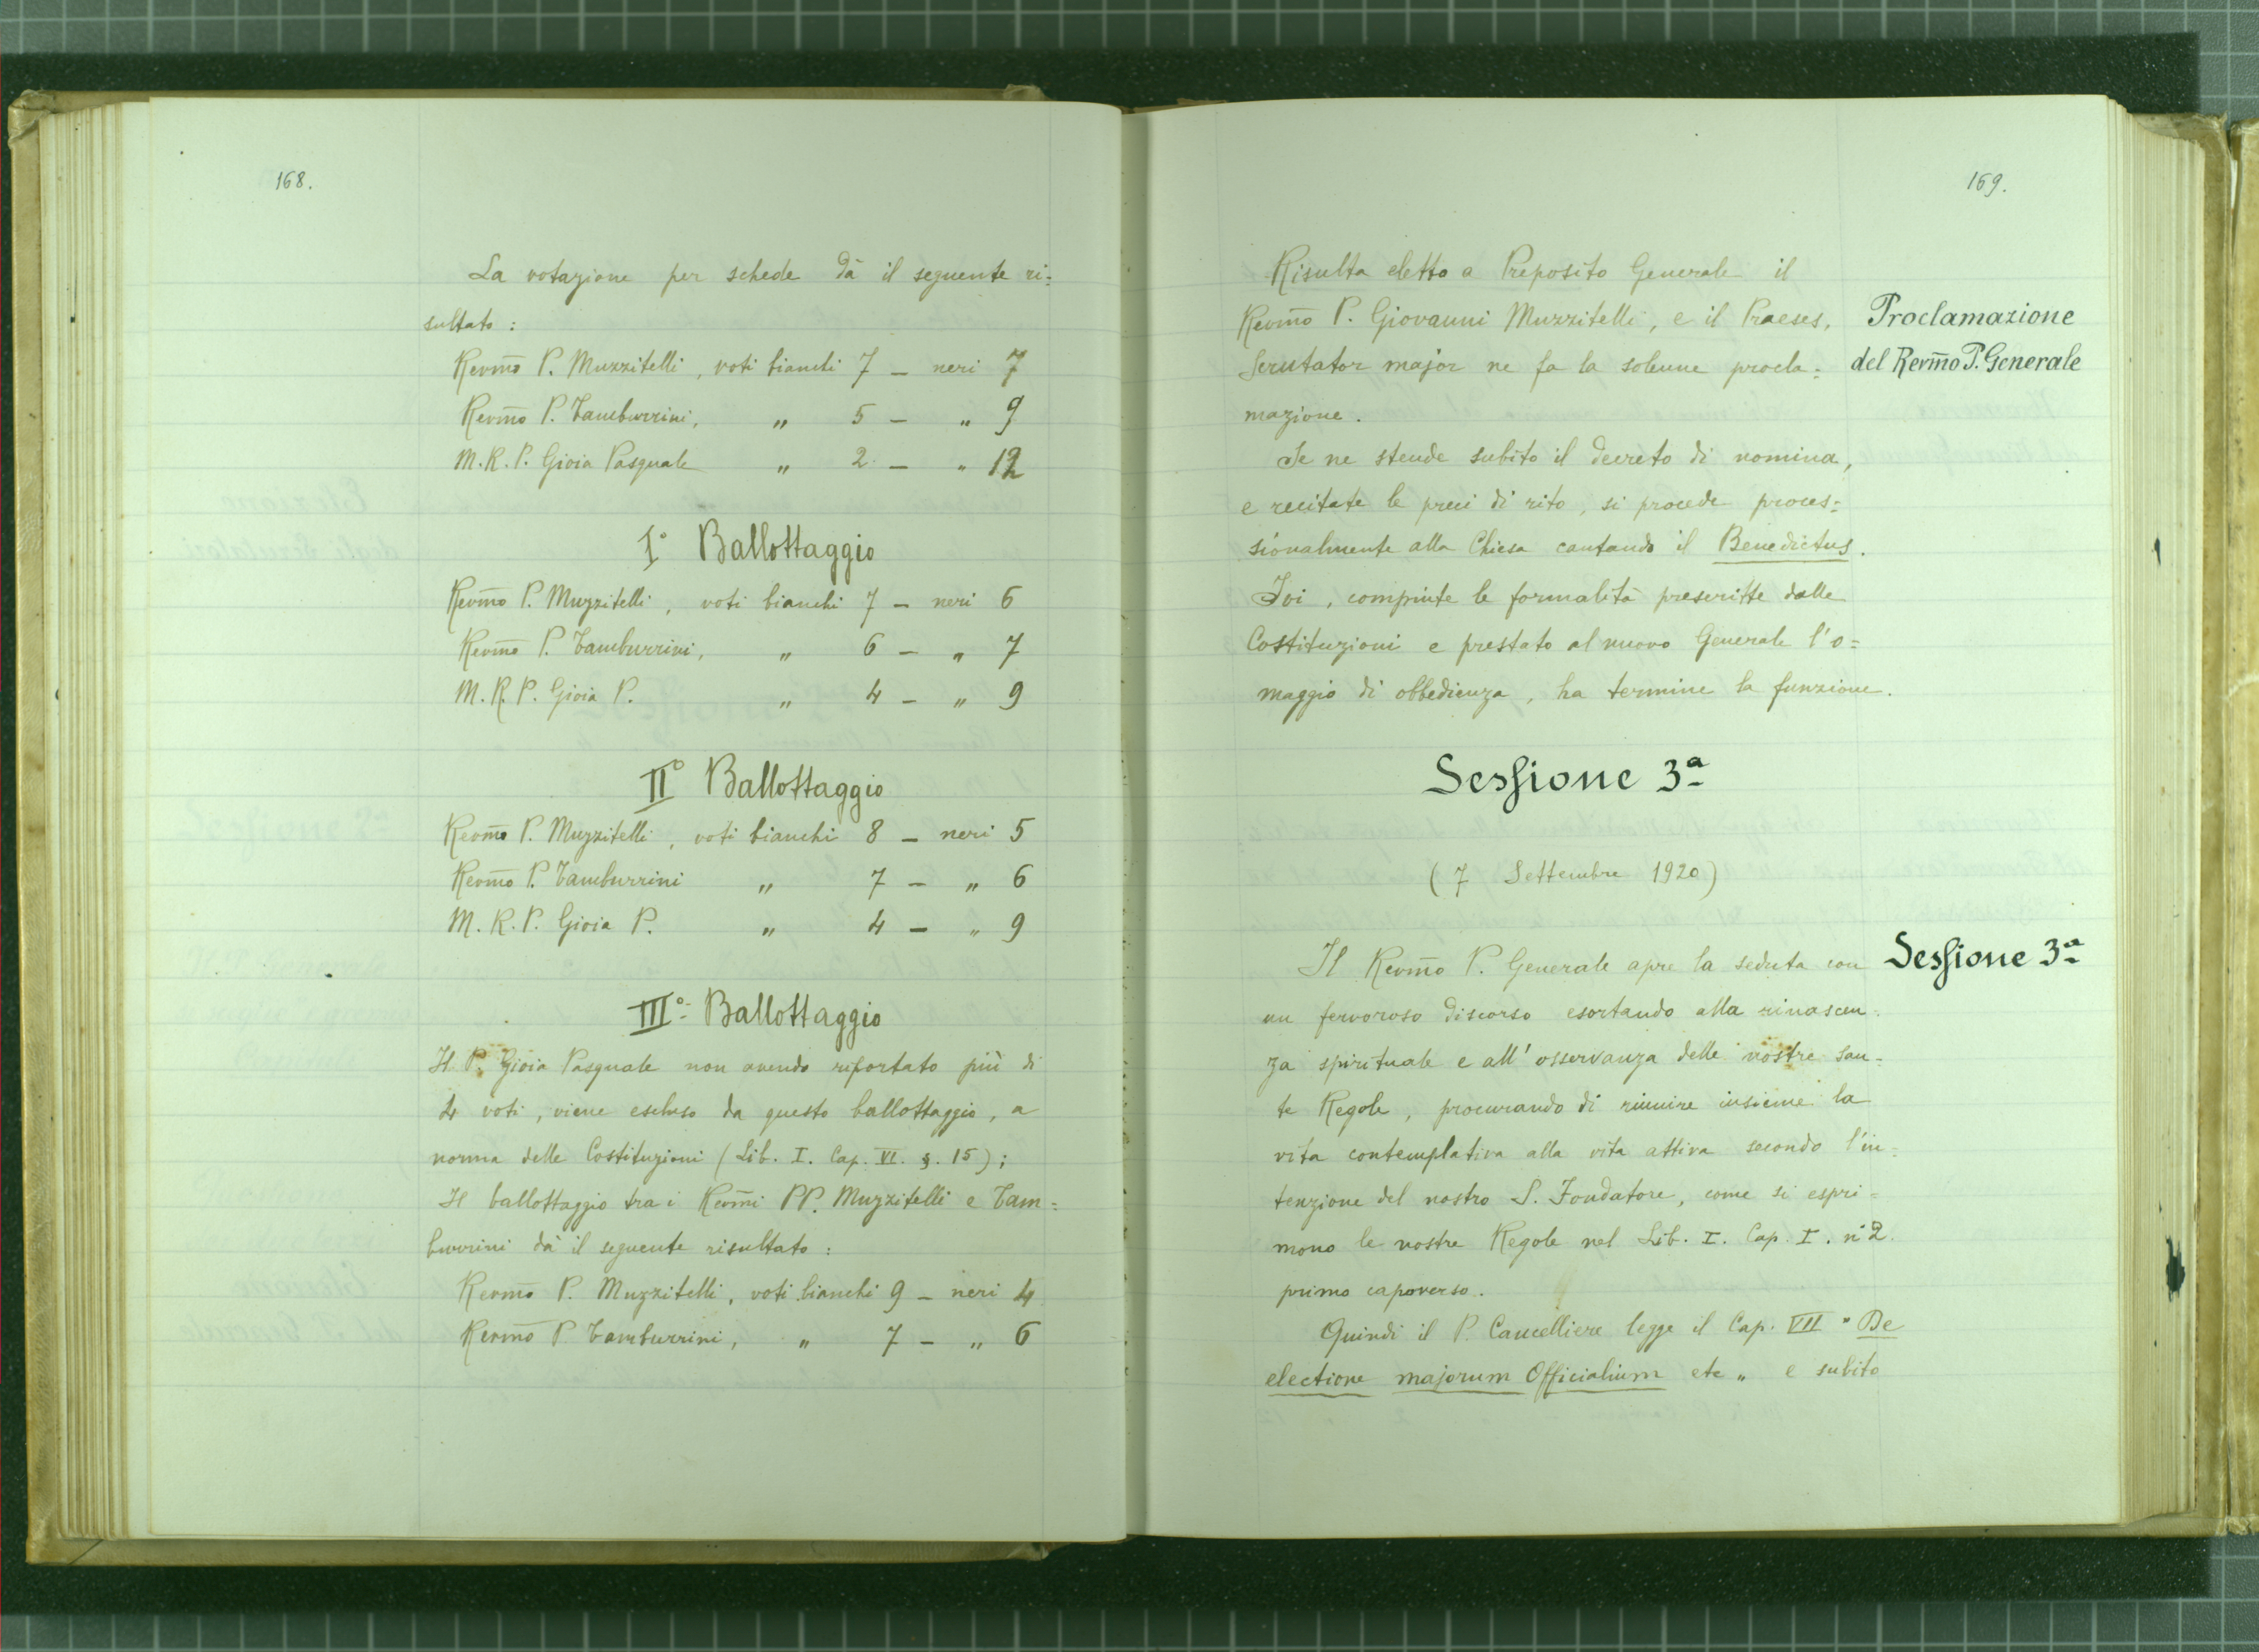 168.
La votazione per schede dà il seguente ri=
sultato :
Revm̃o P. Muzzitelli , voti bianchi 7 — neri 7
Revm̃o P. Tamburrini, „ 5 — „ 9
M.R.P. Gioia Pasquale „ 2 — „ 12
I° Ballottaggio
Revm̃o P. Muzzitelli , voti bianchi 7 — neri 6
Revm̃o P. Tamburrini, „ 6 — „ 7
M.R.P. Gioia P. „ 4 — „ 9
II° Ballottaggio
Revm̃o P. Muzzitelli , voti bianchi 8 — neri 5
Revm̃o P. Tamburrini „ 7 — „ 6
M.R.P. Gioia P. „ 4 — „ 9
III° Ballottaggio
Il P. Gioia Pasquale non avendo riportato più di
4 voti , viene escluso da questo ballottaggio , a
norma delle Costituzioni ( Lib. I. Cap. VI. §. 15 ) ;
Il ballottaggio tra i Revm̃i PP. Muzzitelli e Tam=
burrini dà il seguente risultato :
Revm̃o P. Muzzitelli , voti bianchi 9 — neri 4
Revm̃o P Tamburrini , „ 7 — „ 6
169.
Risulta eletto a Preposito Generale il
Revm̃o P. Giovanni Muzzitelli , e il Praeses,
Scrutator major ne fa la solenne procla=
mazione .
Proclamazione
del Revm̃o P. Generale
Se ne stende subito il decreto di nomina,
e recitate le preci di rito , si procede proces=
sionalmente alla Chiesa cantando il Benedictus.
Ivi , compiute le formalità prescritte dalle
Costituzioni e prestato al nuovo Generale l'o=
maggio di obbedienza , ha termine la funzione.
Sessione 3ª
( 7 Settembre 1920 )
Il Revm̃o P. Generale apre la seduta con
Sessione 3ª
un fervoroso discorso esortando alla rinascen=
za spirituale e all' osservanza delle nostre san=
te Regole , procurando di riunire insieme la
vita contemplativa alla vita attiva secondo l'in=
tenzione del nostro S. Fondatore, come si espri=
mono le nostre Regole nel Lib. I. Cap. I. n° 2.
primo capoverso .
Quindi il P. Cancelliere legge il Cap. VII " De
electione majorum Officialium etc „ e subito